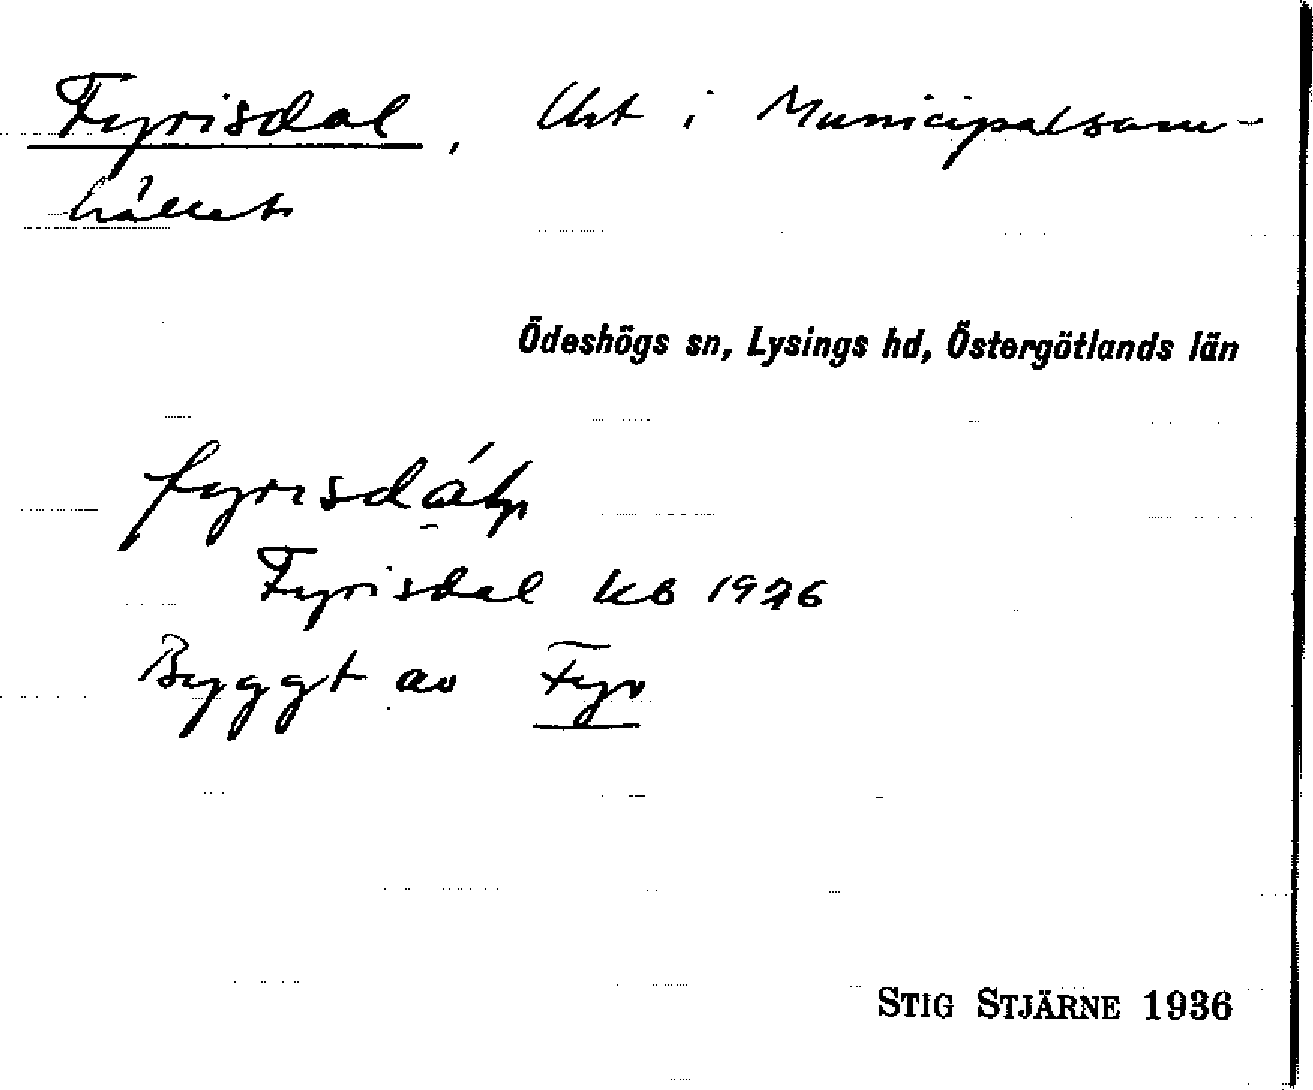 Fyrisdal, Uht i Municipalsam-
hället
Ödeshögs sn, Lysings hd, Östergötlands län
fyrisdáł
Fyrisdal KB 1926
Byggt av Fyr
STIG STJÄRNE 1936